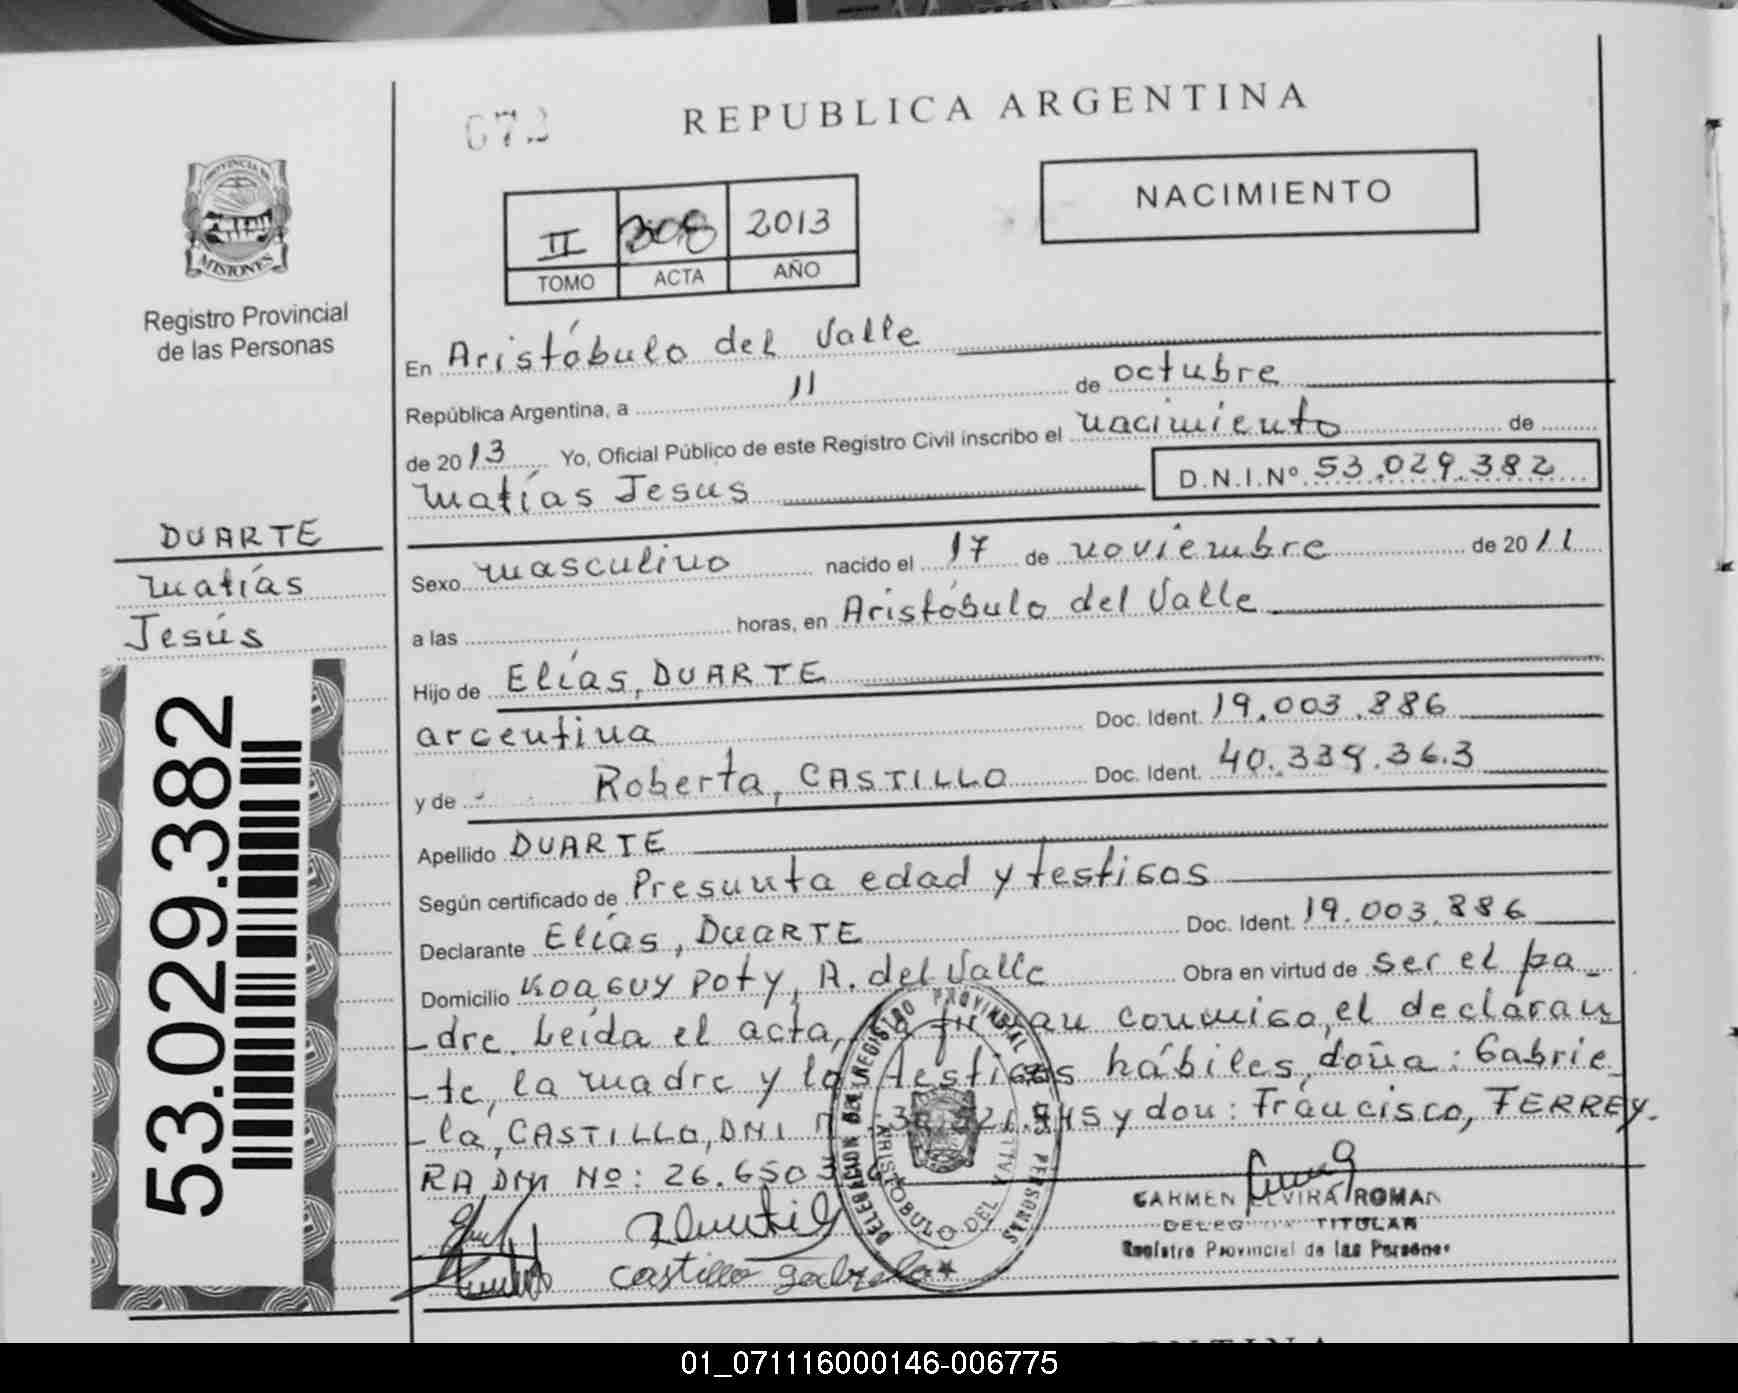 672
REPUBLICA ARGENTINA
NACIMIENTO
II 308 2013
TOMO ACTA AÑO
PROVINCIA DE
MISIONES
Registro Provincial
de las Personas
En Aristóbulo del Valle
República Argentina, a 11 de octubre
de 2013 Yo, Oficial Público de este Registro Civil inscribo el nacimiento de
Matías Jesus D.N.I.Nº 53.029.382
DUARTE
Matías
Jesús
53.029.382
Sexo masculino nacido el 17 de noviembre de 2011
a las horas, en Aristóbulo del Valle
Hijo de Elías, DUARTE
argentina Doc. Ident. 19.003.886
y de Roberta, CASTILLO Doc. Ident. 40.339.363
Apellido DUARTE
Según certificado de Presunta edad y testigos
Declarante Elías, DUARTE Doc. Ident. 19.003.886
Domicilio Koaguy Poty, A. del Valle Obra en virtud de ser el pa_
_dre. Leída el acta, la firman conmigo, el declaran
_te, la madre y los testigos hábiles, doña: Gabrie_
_la, CASTILLO, DNI y don: Francisco, FERREY_
RA DNI Nº: 26.650
DELEGACION DEL REGISTRO PROVINCIAL DE LAS PERSONAS
ARISTOBULO DEL
CARMEN ELVIRA ROMAN
DELEGADA TITULAR
Registro Provincial de las Personas
Castillo Gabriela
01_071116000146-006775